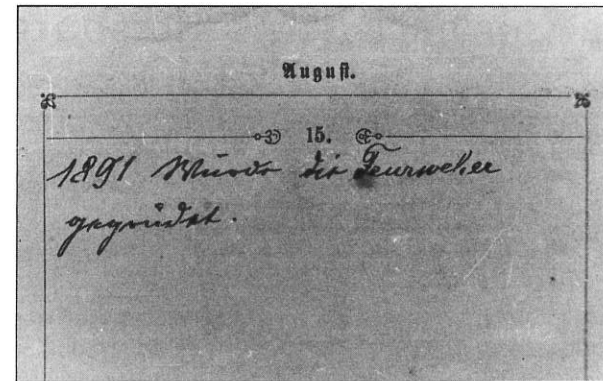 August.
15.
1891 Wurde die Feurweher
gegründet.